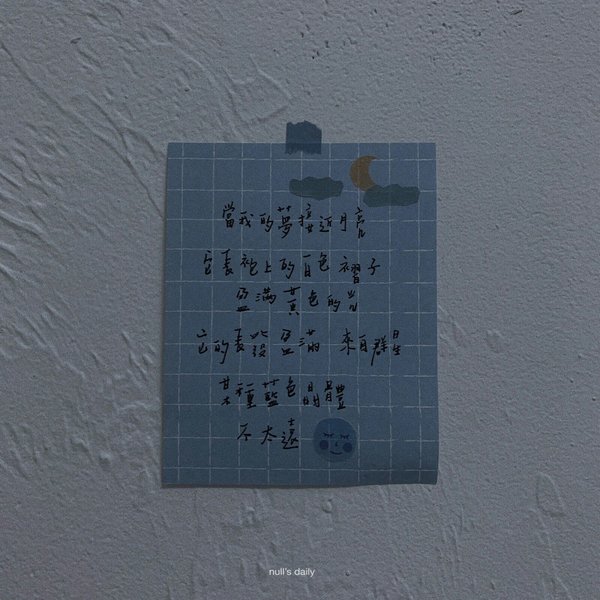 當我的夢接近月亮
它長袍上的白色褶子
盈滿黃色的光
它的長髮盈滿 來自群星
某種藍色晶體
不太遠
null's daily